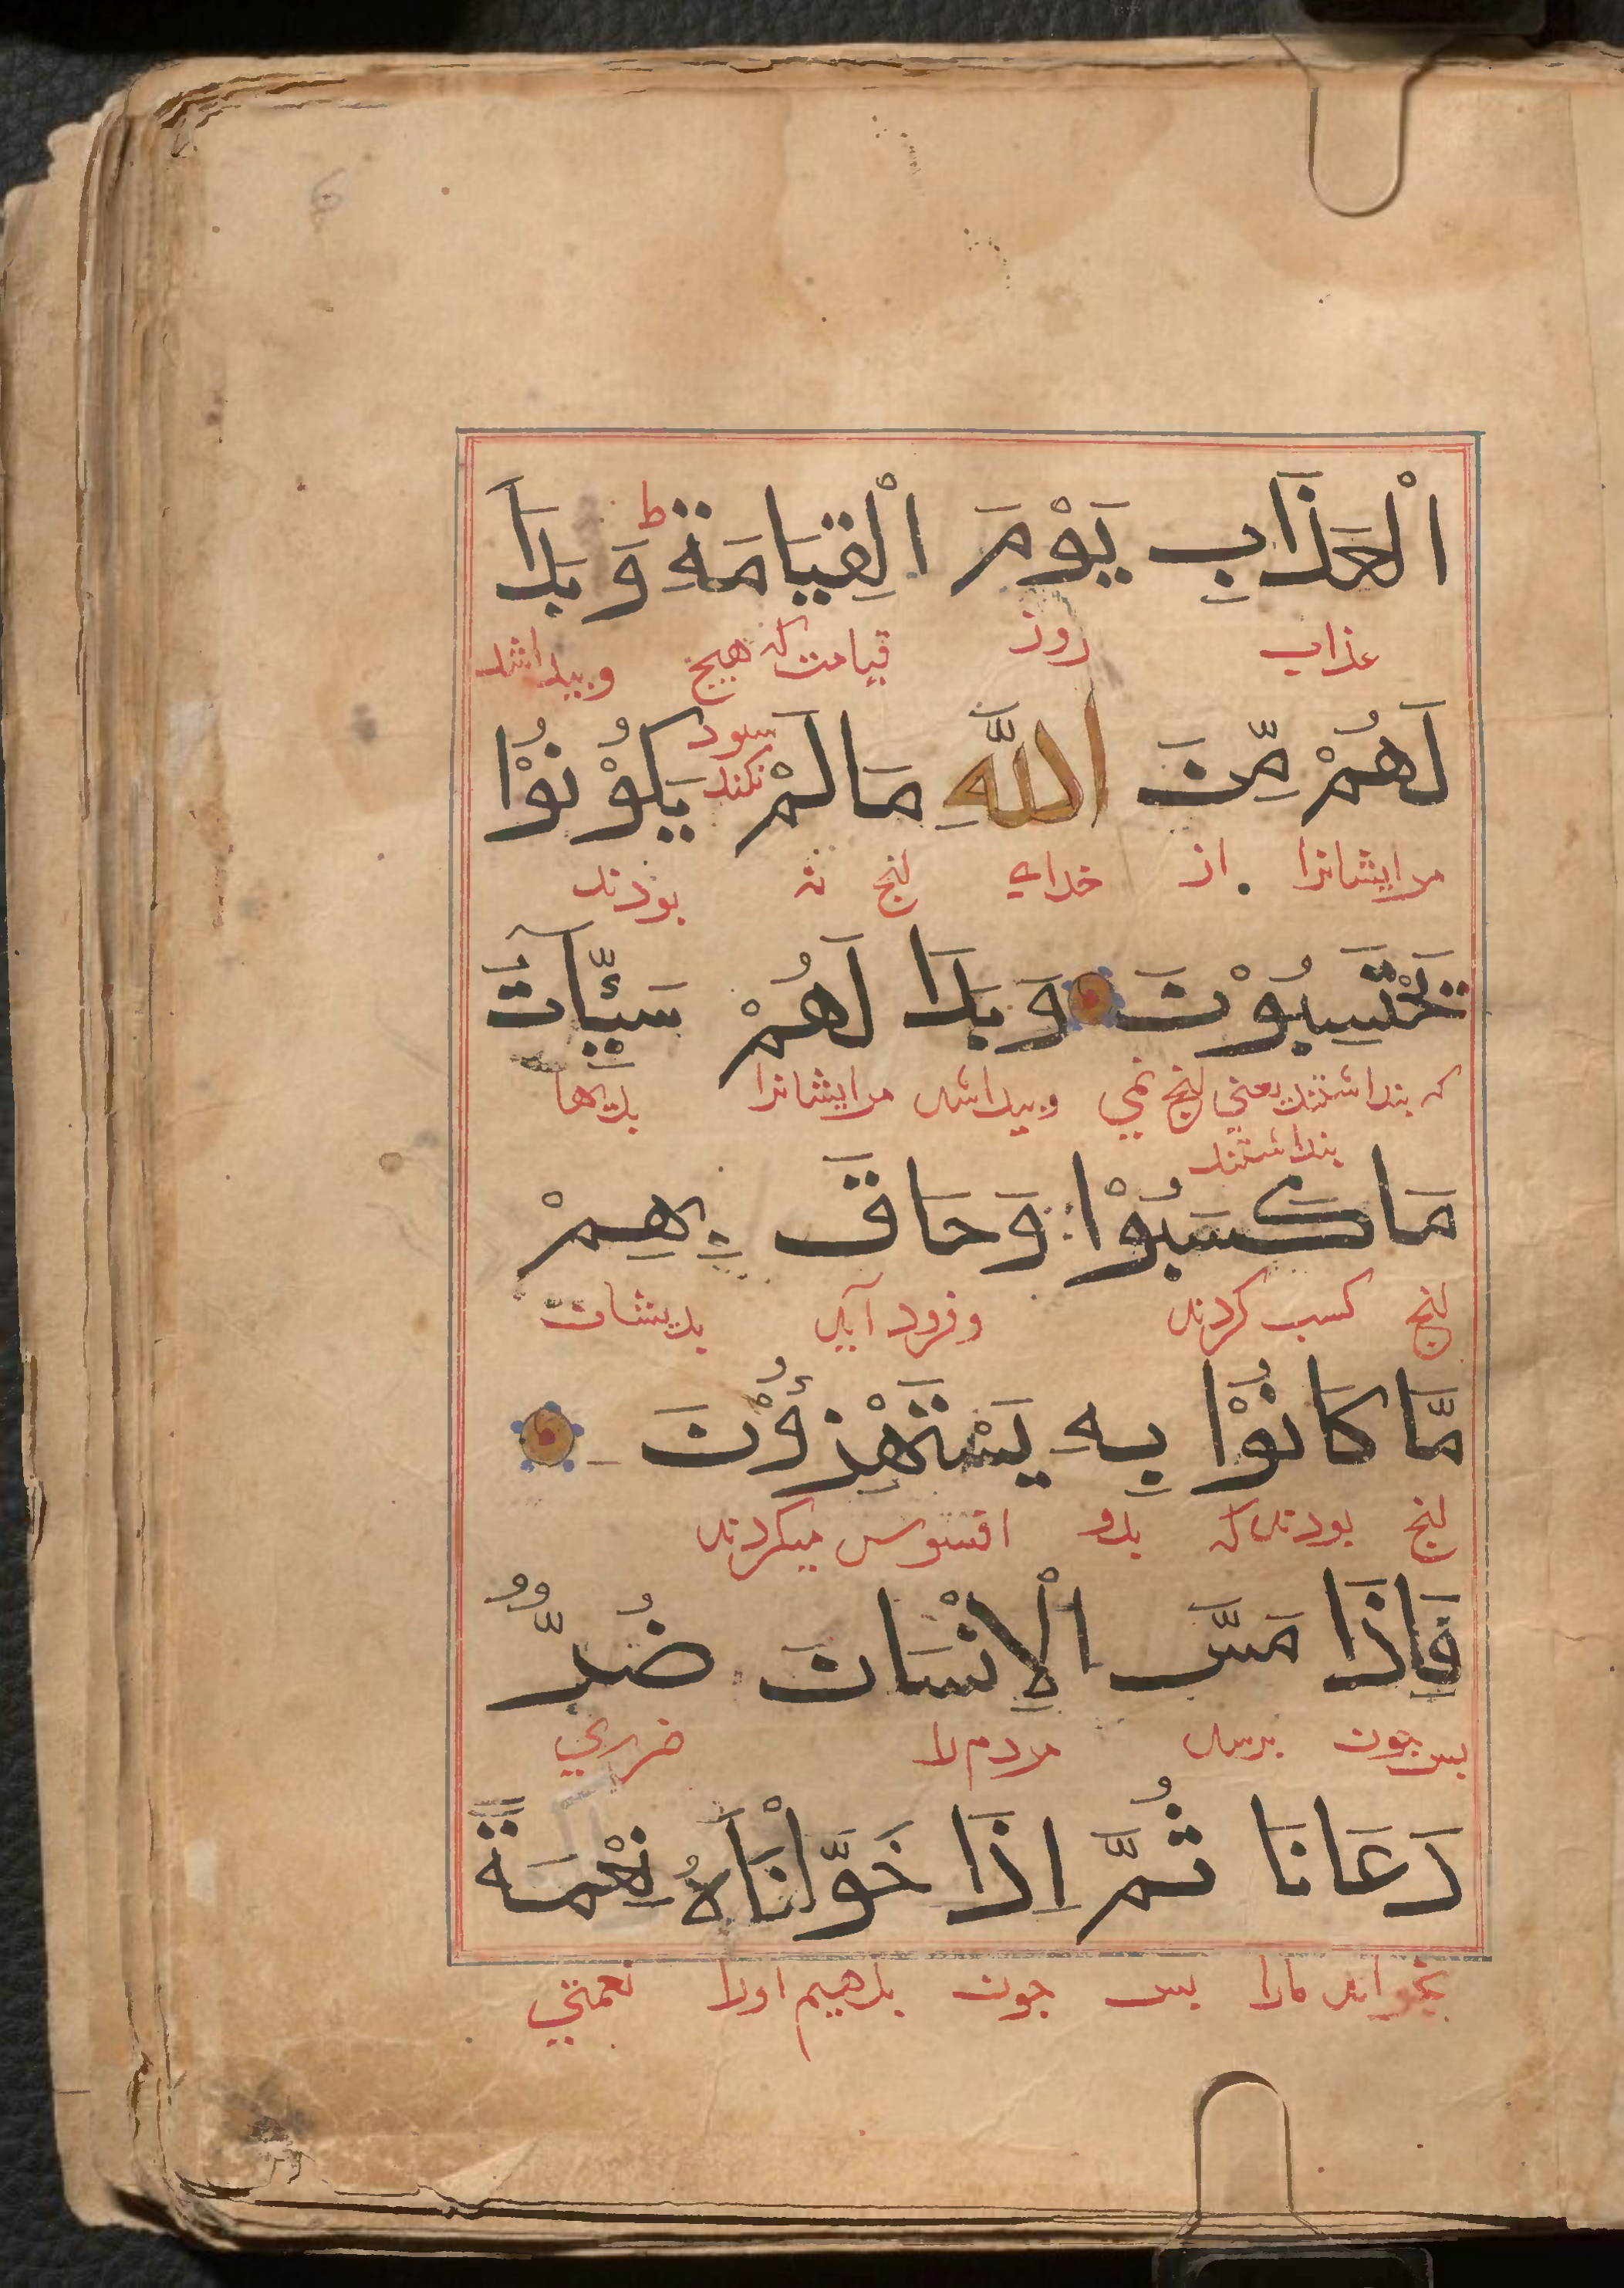 الْعَذَابِ يَوْمَ الْقِيَامَةِ ط وَبَدَا
عذاب روز قیامت که هیچ وبیداشد
سود
نکند
لَهُمْ مِّنَ اللَّهِ مَالَمْ يَكُوْنُوْا
مرایشانرا از خدای انج نه بودند
يَحْتَسِبُوْنَ وَبَدَا لَهُمْ سَيِّئَاتُ
که بنداشتند یعنی انج نمی وبیداشد مرایشانرا بدیها
بنداشتند
مَا كَسَبُوْا وَحَاقَ بِهِمْ
انج کسب کردند وفرود آید بدیشان
مَّا كَانُوْا بِهِ يَسْتَهْزِؤُنَ
انج بودند که بدو افسوس میکردند
فَاِذَا مَسَّ الْاِنْسَانَ ضُرٌّ
بس جون برسد مردم را ضرری
دَعَانَا ثُمَّ اِذَا خَوَّلْنَاهُ نِعْمَةً
بخواند مارا بس جون بدهیم اورا نعمتی